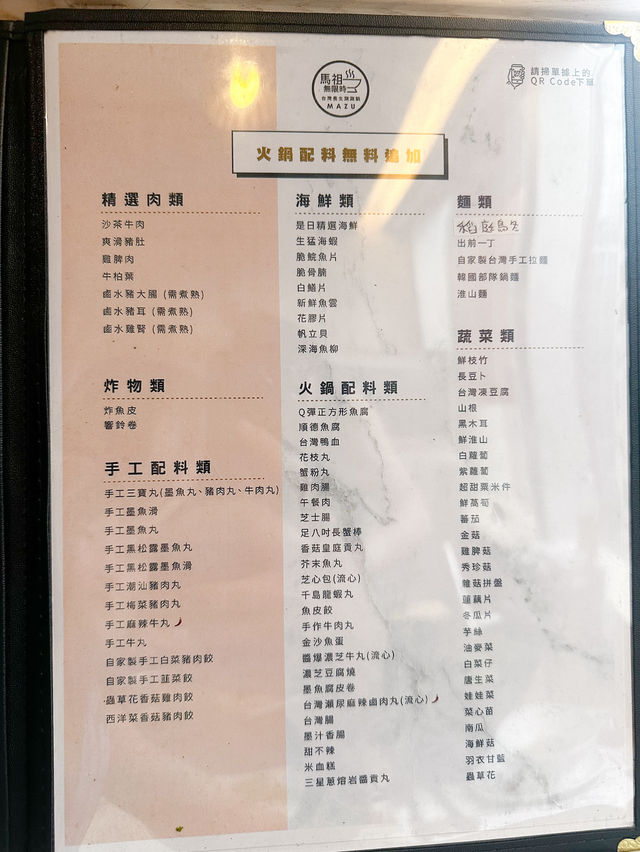 馬祖
無限時
台灣養生麻辣鍋
MAZU
請掃單據上的
QR Code下單
火鍋配料無料追加
精選肉類
沙茶牛肉
爽滑豬肚
雞脾肉
牛柏葉
鹵水豬大腸 (需煮熟)
鹵水豬耳 (需煮熟)
鹵水雞腎 (需煮熟)
炸物類
炸魚皮
響鈴卷
手工配料類
手工三寶丸(墨魚丸、豬肉丸、牛肉丸)
手工墨魚滑
手工墨魚丸
手工黑松露墨魚丸
手工黑松露墨魚滑
手工潮汕豬肉丸
手工梅菜豬肉丸
手工麻辣牛丸
手工牛丸
自家製手工白菜豬肉餃
自家製手工韮菜餃
蟲草花香菇雞肉餃
西洋菜香菇豬肉餃
海鮮類
是日精選海鮮
生猛海蝦
脆脘魚片
脆骨腩
白鱔片
新鮮魚雲
花膠片
帆立貝
深海魚柳
火鍋配料類
Q彈正方形魚腐
順德魚腐
台灣鴨血
花枝丸
蟹粉丸
雞肉腸
午餐肉
芝士腸
足八吋長蟹棒
香菇皇庭貢丸
芥末魚丸
芝心包(流心)
千島龍蝦丸
魚皮餃
手作牛肉丸
金沙魚蛋
醬爆濃芝牛丸(流心)
濃芝豆腐燒
墨魚腐皮卷
台灣瀨尿麻辣鹵肉丸(流心)
台灣腸
墨汁香腸
甜不辣
米血糕
三星蔥熔岩醬貢丸
麵類
稻庭烏冬
出前一丁
自家製台灣手工拉麵
韓國部隊鍋麵
淮山麵
蔬菜類
鮮枝竹
長豆卜
台灣凍豆腐
山根
黑木耳
鮮淮山
白蘿蔔
紫蘿蔔
超甜粟米件
鮮萵筍
蕃茄
金菇
雞脾菇
秀珍菇
雜菇拼盤
蓮藕片
冬瓜片
芋絲
油麥菜
白菜仔
唐生菜
娃娃菜
菜心苗
南瓜
海鮮菇
羽衣甘藍
蟲草花